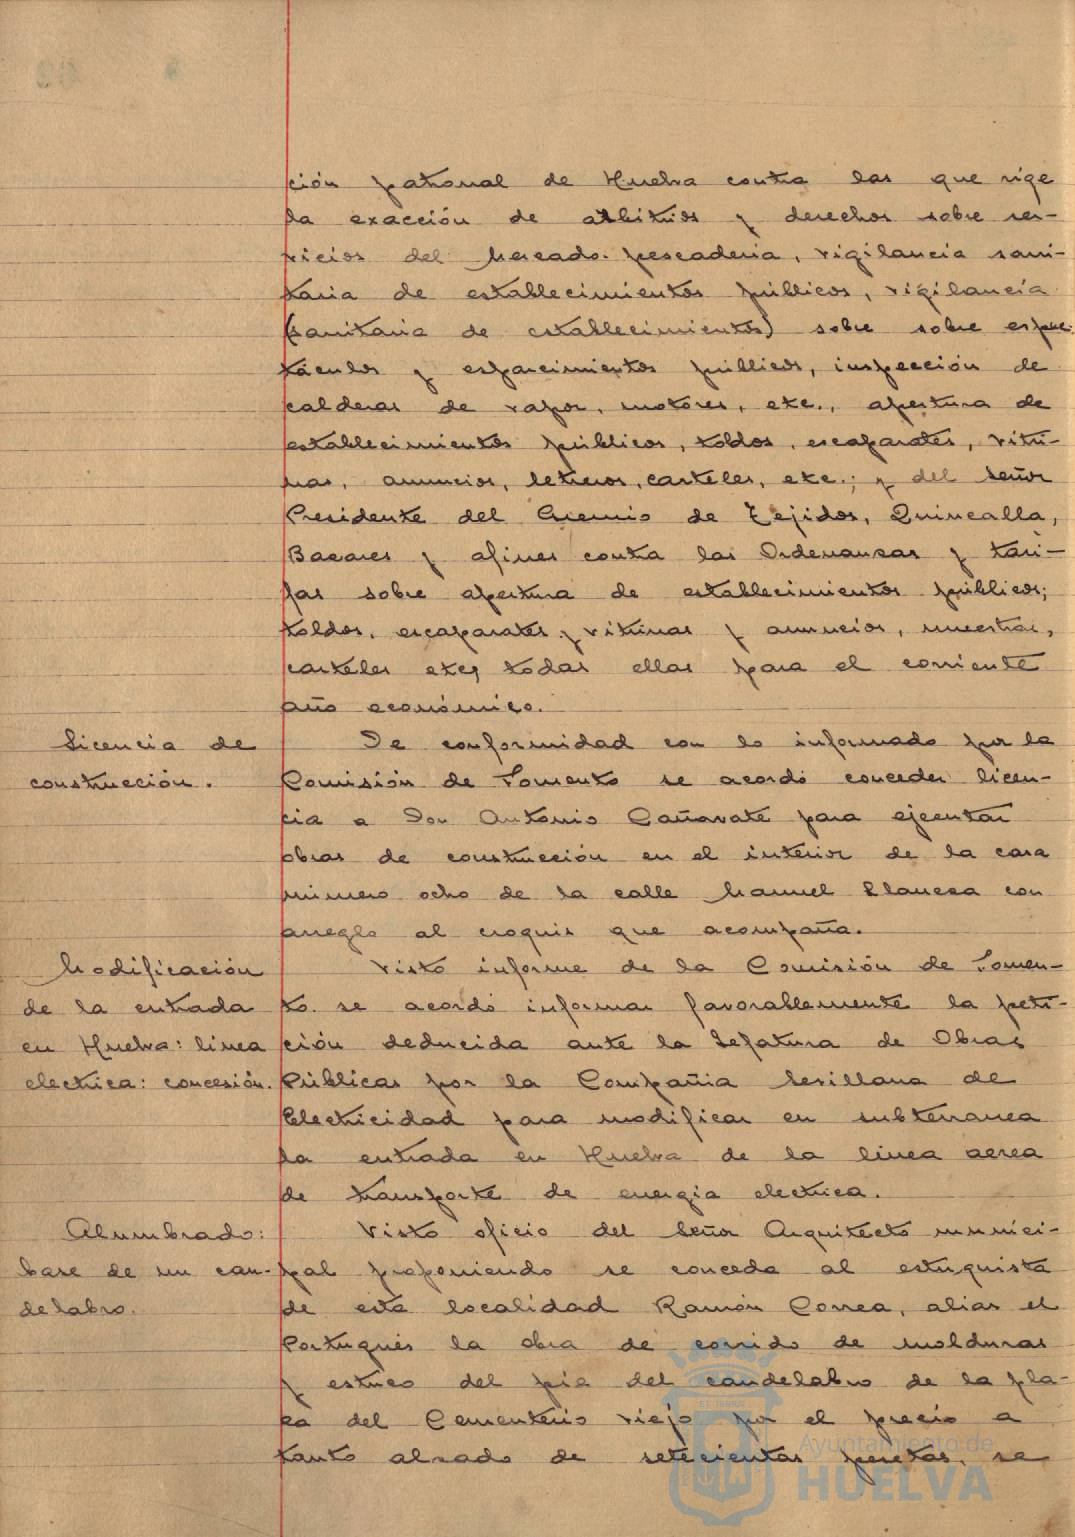 ción patronal de Huelva contra las que rige
la exacción de arbitrios y derechos sobre ser-
vicios del Mercado. pescaderia, vigilancia sani-
taria de establecimientos públicos, vigilancia
(sanitaria de establecimientos) sobre sobre espec-
táculos y esparcimientos públicos, inspección de
calderas de vapor, motores, etc., apertura de
establecimientos públicos, toldos, escaparates, vitri-
nas, anuncios, letreros, carteles, etc.; y del Señor
Presidente del Gremio de Tejidos, Quincalla,
Bazares y afines contra las Ordenanzas y tari-
fas sobre apertura de establecimientos públicos;
toldos, escaparates y vitrinas y anuncios, muestras,
carteles etc; todas ellas para el corriente
año económico.
Licencia de
construcción.
De conformidad con lo informado por la
Comisión de Fomento se acordó conceder licen-
cia a Don Antonio Cañavate para ejecutar
obras de construcción en el interior de la casa
número ocho de la calle Manuel Llaneza con
arreglo al croquis que acompaña.
Modificación
de la entrada
en Huelva: linea
electrica: concesión.
Visto informe de la Comisión de Fomen-
to se acordó informar favorablemente la peti-
ción deducida ante la Jefatura de Obras
Públicas por la Compañia Sevillana de
Electricidad para modificar en subterranea
la entrada en Huelva de la linea aerea
de transporte de energia electrica.
Alumbrado:
base de un can-
delabro.
Visto oficio del Señor Arquitecto munici-
pal proponiendo se conceda al estuquista
de esta localidad Ramón Correa, alias el
Portugués la obra de corrido de molduras
y estuco del pie del candelabro de la pla-
za del Cementerio viejo por el precio a
tanto alzado de setecientas pesetas, se
Ayuntamiento de
HUELVA